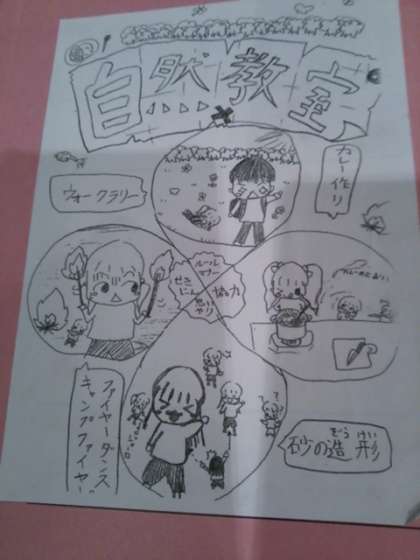 自然教室
カレー作り
ウォークラリー
ルール
マナー
せき
にん
思い
やり
協力
カレーのにおい
ファイヤーダンス
キャンプファイヤー
砂の造形
ぞう けい